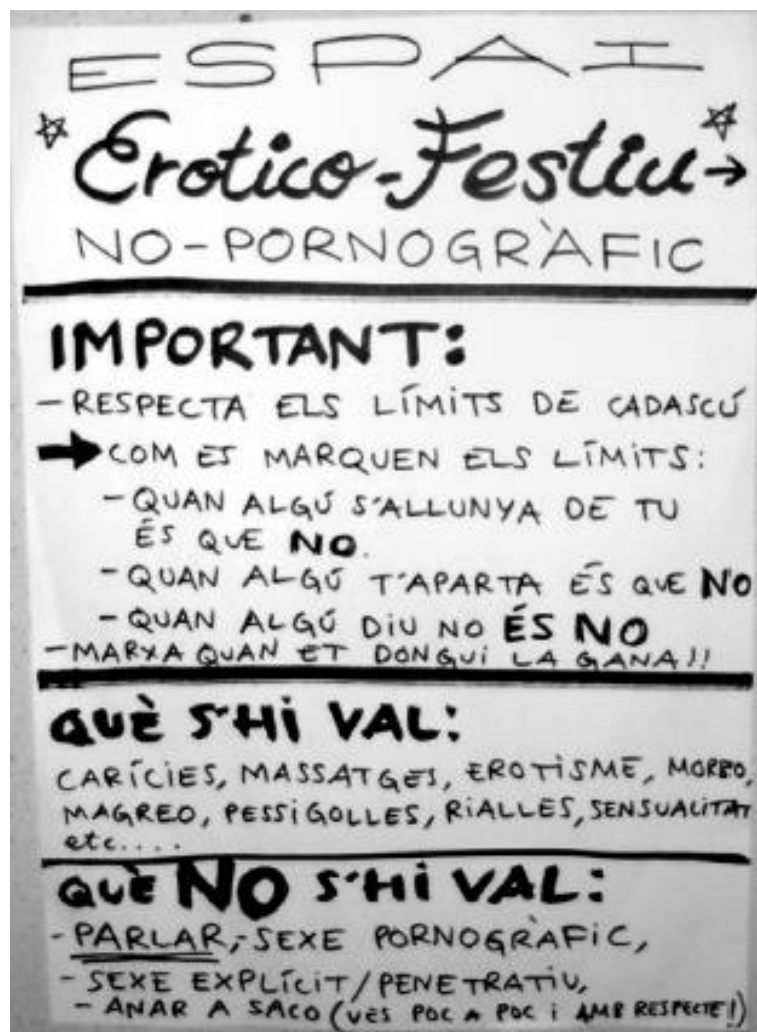 ESPAI
Erotico-Festiu →
NO-PORNOGRÀFIC
IMPORTANT:
- RESPECTA ELS LÍMITS DE CADASCÚ
→ COM ES MARQUEN ELS LÍMITS:
- QUAN ALGÚ S'ALLUNYA DE TU
ÉS QUE NO.
- QUAN ALGÚ T'APARTA ÉS QUE NO
- QUAN ALGÚ DIU NO ÉS NO
- MARXA QUAN ET DONGUI LA GANA!!
QUÈ S'HI VAL:
CARÍCIES, MASSATGES, EROTISME, MORBO,
MAGREO, PESSIGOLLES, RIALLES, SENSUALITAT
etc....
QUÈ NO S'HI VAL:
- PARLAR, - SEXE PORNOGRÀFIC,
- SEXE EXPLÍCIT/PENETRATIU,
- ANAR A SACO (VES POC A POC i AMB RESPECTE!)